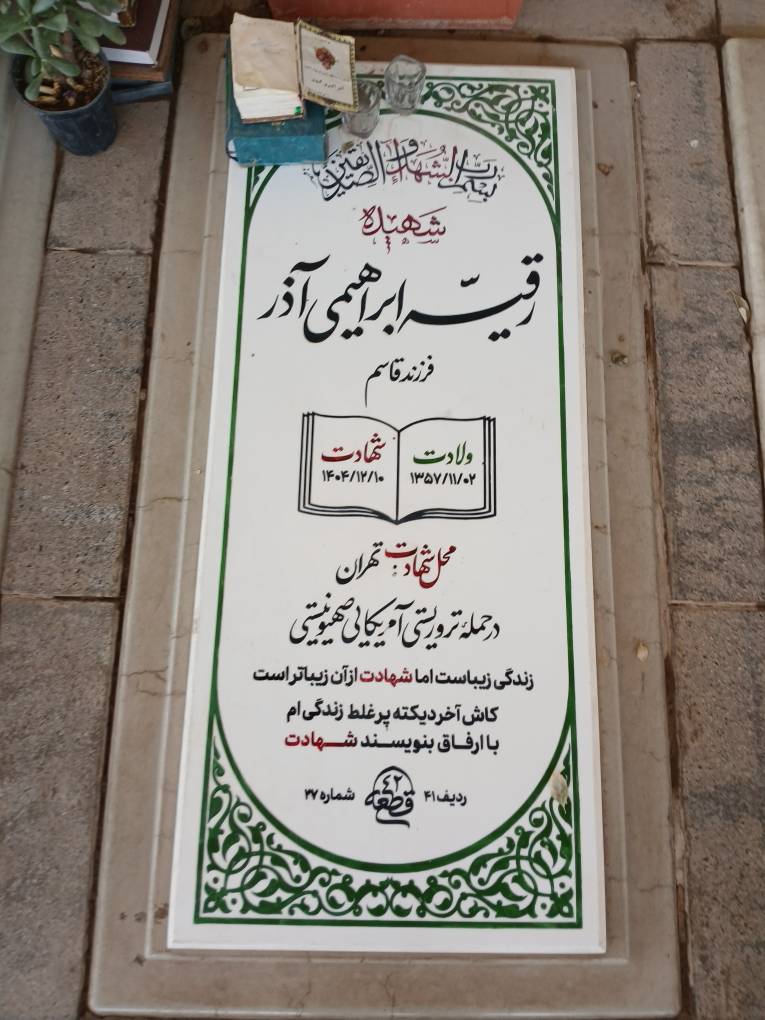 بسم رب الشهداء و الصدیقین
شهیده
رقیه ابراهیمی آذر
فرزند قاسم
ولادت
۱۳۵۷/۱۱/۰۲
شهادت
۱۴۰۴/۱۲/۱۰
محل شهادت: تهران
در حملهٔ تروریستی آمریکایی صهیونیستی
زندگی زیباست اما شهادت از آن زیباتر است
کاش آخر دیکته پر غلط زندگی ام
با ارفاق بنویسند شهادت
قطعه ۴۲
ردیف ۴۱ شماره ۲۷